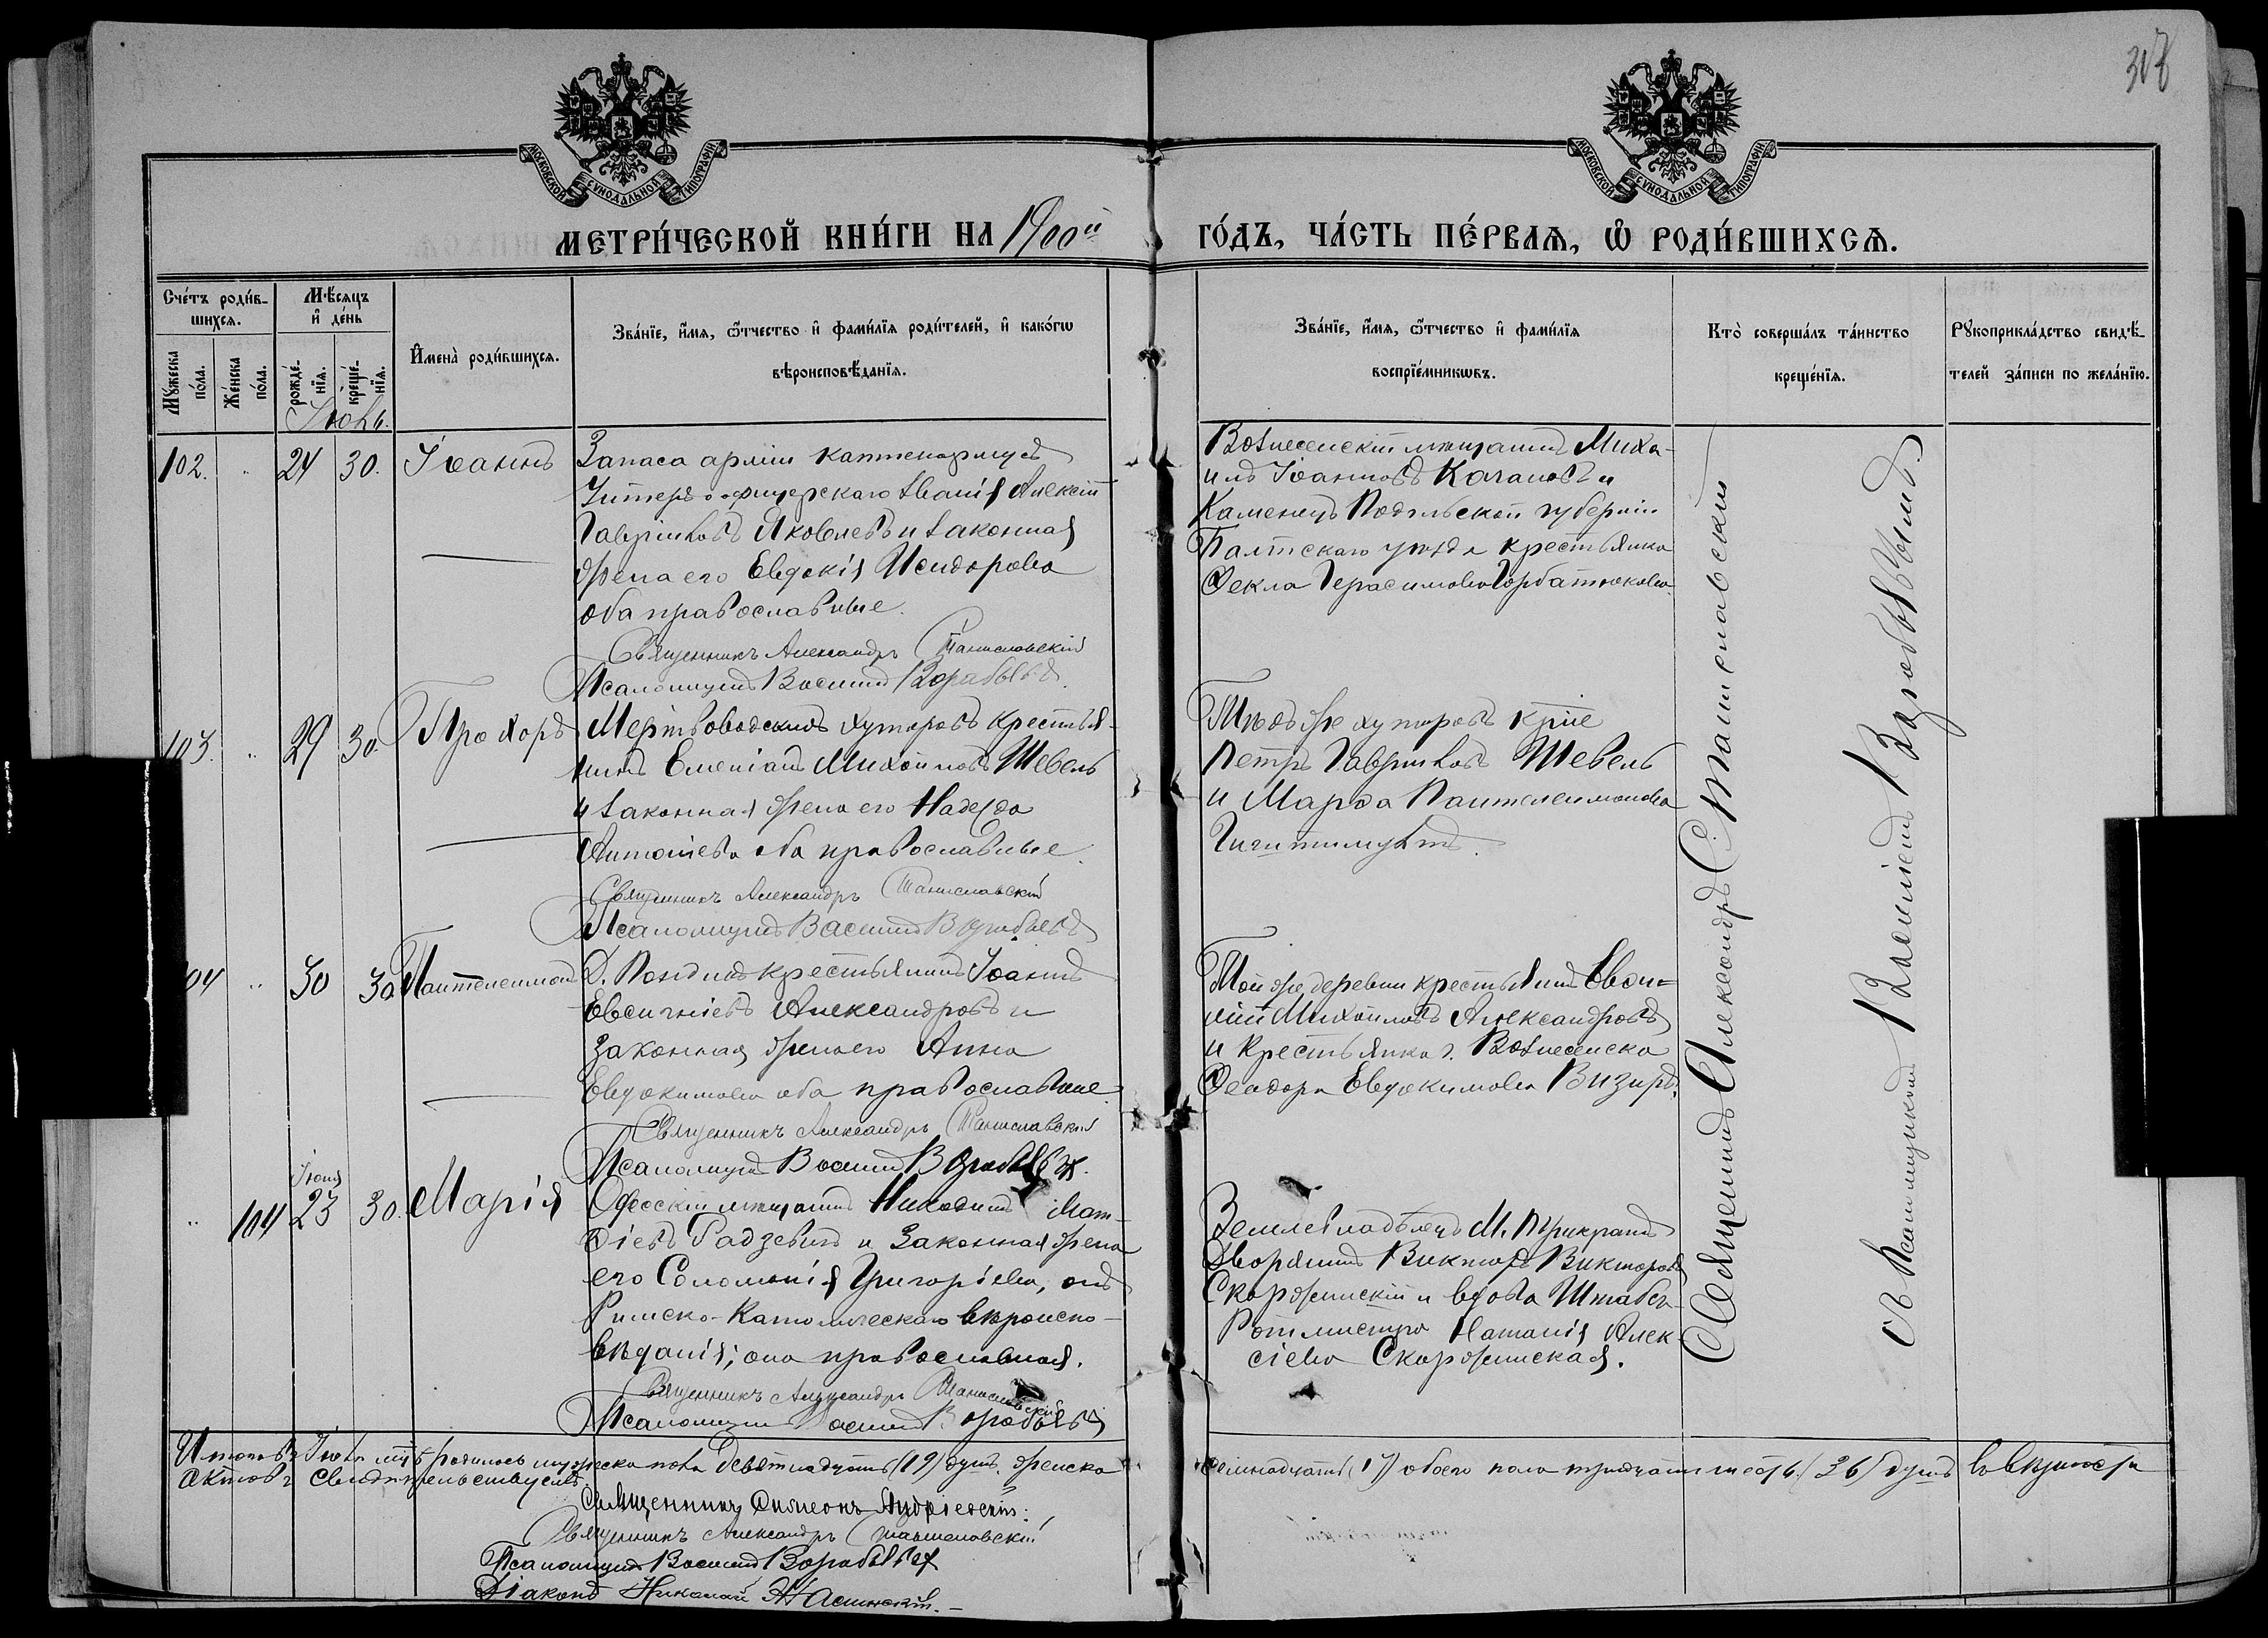 318
МОСКОВСКОЙ СѴНОДАЛЬНОЙ ТИПОГРАФІИ
МОСКОВСКОЙ СѴНОДАЛЬНОЙ ТИПОГРАФІИ
МЕТРИ́ЧЕСКОЙ КНИ́ГИ НА 1900й ГО́ДЪ, ЧА́СТЬ ПЕ́РВАѦ, Ѡ҆ РОДИ́ВШИХСѦ.
Сче́тъ роди́в-
шихсѧ.
Мꙋ́жеска по́ла.
Же́нска по́ла.
Мѣ́сѧцъ
и҆ де́нь
рожде́-
нїѧ.
креще́-
нїѧ.
Іюнь.
И҆мена̀ роди́вшихсѧ.
Зва́нїе, и҆́мѧ, ѻ҆́тчество и҆ фами́лїѧ роди́телей, и҆ како́гѡ
вѣроисповѣ́данїѧ.
Зва́нїе, и҆́мѧ, ѻ҆́тчество и҆ фами́лїѧ
воспрїе́мникѡвъ.
Кто̀ соверша́лъ та́инство
креще́нїѧ.
Рꙋкоприкла́дство свидѣ́-
телей за́писи по жела́нїю.
102. " 24 30. Іоаннъ
Запаса арміи каптенармусъ
Унтеръ-офицерскаго званія Алексій
Гавріиловъ Яковлевъ и законная
жена его Евдокія Исидорова
оба православные.
Священникъ Александръ Станиславскій
Псаломщикъ Василій Воробьевъ.
Вознесенскій мѣщанинъ Миха-
илъ Іоанновъ Качановъ и
Каменецъ Подольской губерніи
Балтскаго уѣзда крестьянка
Ѳекла Герасимова Горбатюкова.
103. " 29 30. Прохоръ
Мертвоводскихъ хуторовъ крестья-
нинъ Емеліанъ Михаиловъ Шевель
и законная жена его Надежда
Антоніева оба православные.
Священникъ Александръ Станиславскій
Псаломщикъ Василій Воробьевъ
Тѣхъ же хуторовъ кр-не
Петръ Гавриловъ Шевель
и Марѳа Пантелеимонова
104 " 30 30 Пантелеимонъ
крестьянинъ Іоаннъ
Евсигніевъ Александровъ и
законная жена его Анна
Евдокимова оба православные.
Священникъ Александръ Станиславскій
Псаломщикъ Василій Воробьевъ.
Той же деревни крестьянинъ
Михаиловъ Александровъ
и крестьянка г. Вознесенска
Ѳеодора Евдокимова Визиръ.
Іюня
" 104 23 30. Марія
Одесскій мѣщанинъ Никодимъ Мат-
ѳіевъ Радзевичъ и законная жена
его Соломонія Григоріева, онъ
Римско-Католическаго вѣроиспо-
вѣданія; она православная.
Священникъ Александръ Станиславскій
Псаломщикъ Василій Воробьевъ
Землевладѣлецъ М.
Дворянинъ Викторъ Викторовъ
Скаржинскій и вдова Штабсъ-
Ротмистра Наталія Алек-
сіева Скаржинская.
Священникъ Александръ Станиславскій
съ Псаломщикомъ Василіемъ Воробьевымъ.
Итого въ Іюнѣ м-цѣ родилось мужеска пола девятнадцать (19) душъ, женска семнадцать (17) обоего пола тридцать шесть (36) душъ въ вѣрности
актовъ свидѣтельствуемъ.
Священникъ Симеонъ Андріевскій.
Священникъ Александръ Станиславскій
Псаломщикъ Василій Воробьевъ
Діаконъ Николай